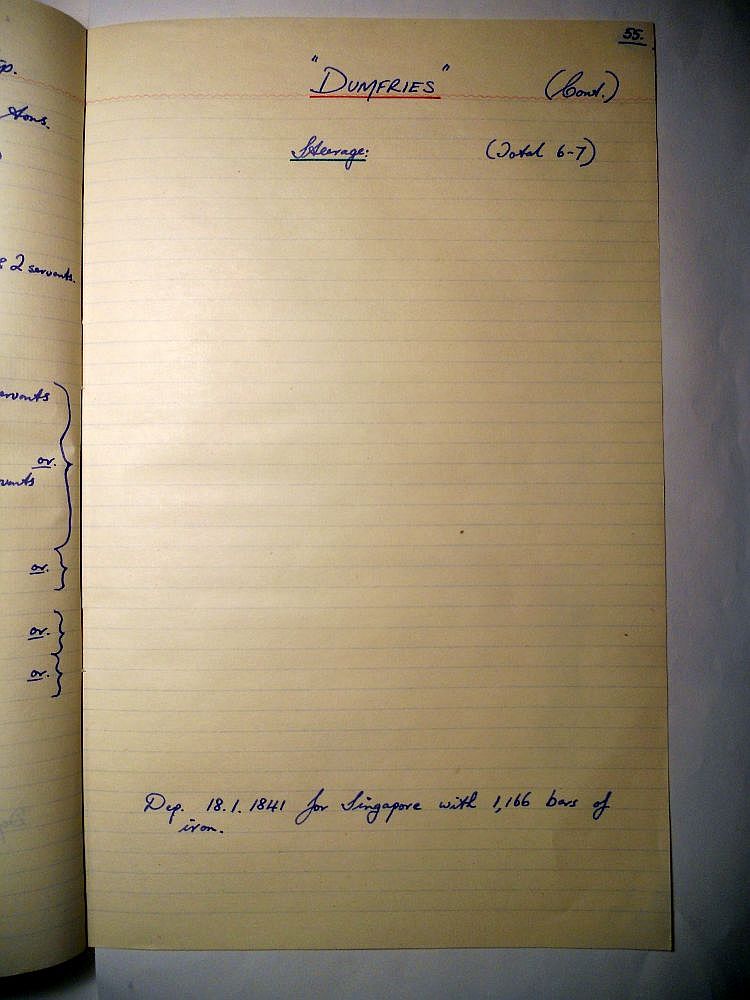 tons.
& 2 servants.
or.
or.
or.
or.
55.
"DUMFRIES" (Cont.)
Steerage: (Total 6-7)
Dep. 18.1.1841 for Singapore with 1,166 bars of
iron.